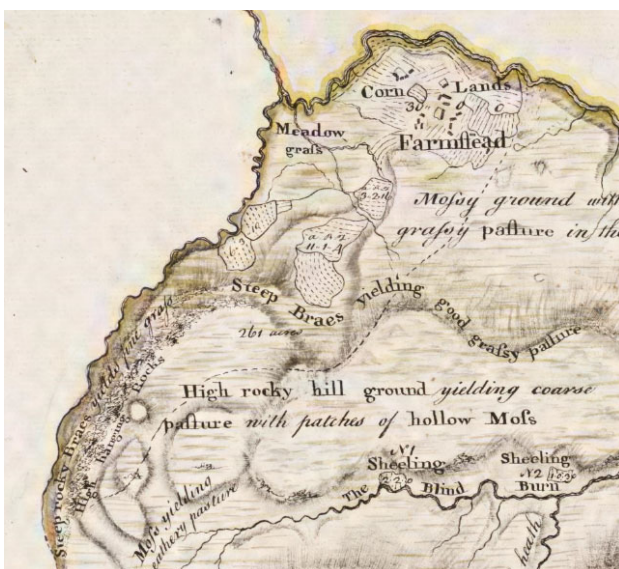 Corn Lands
30 0 0
Farmſtead
Meadow
graſs
Moſsy ground with
graſsy paſture in the
Steep Braes yielding good graſsy paſture
261 acres
High rocky hill ground yielding coarse
paſture with patches of hollow Moſs
Steep rocky Braes yields fine graſs
High hanging Rocks
Moſs yielding
heathery paſture
N1
Sheeling
Sheeling
N2
The Blind Burn
heath